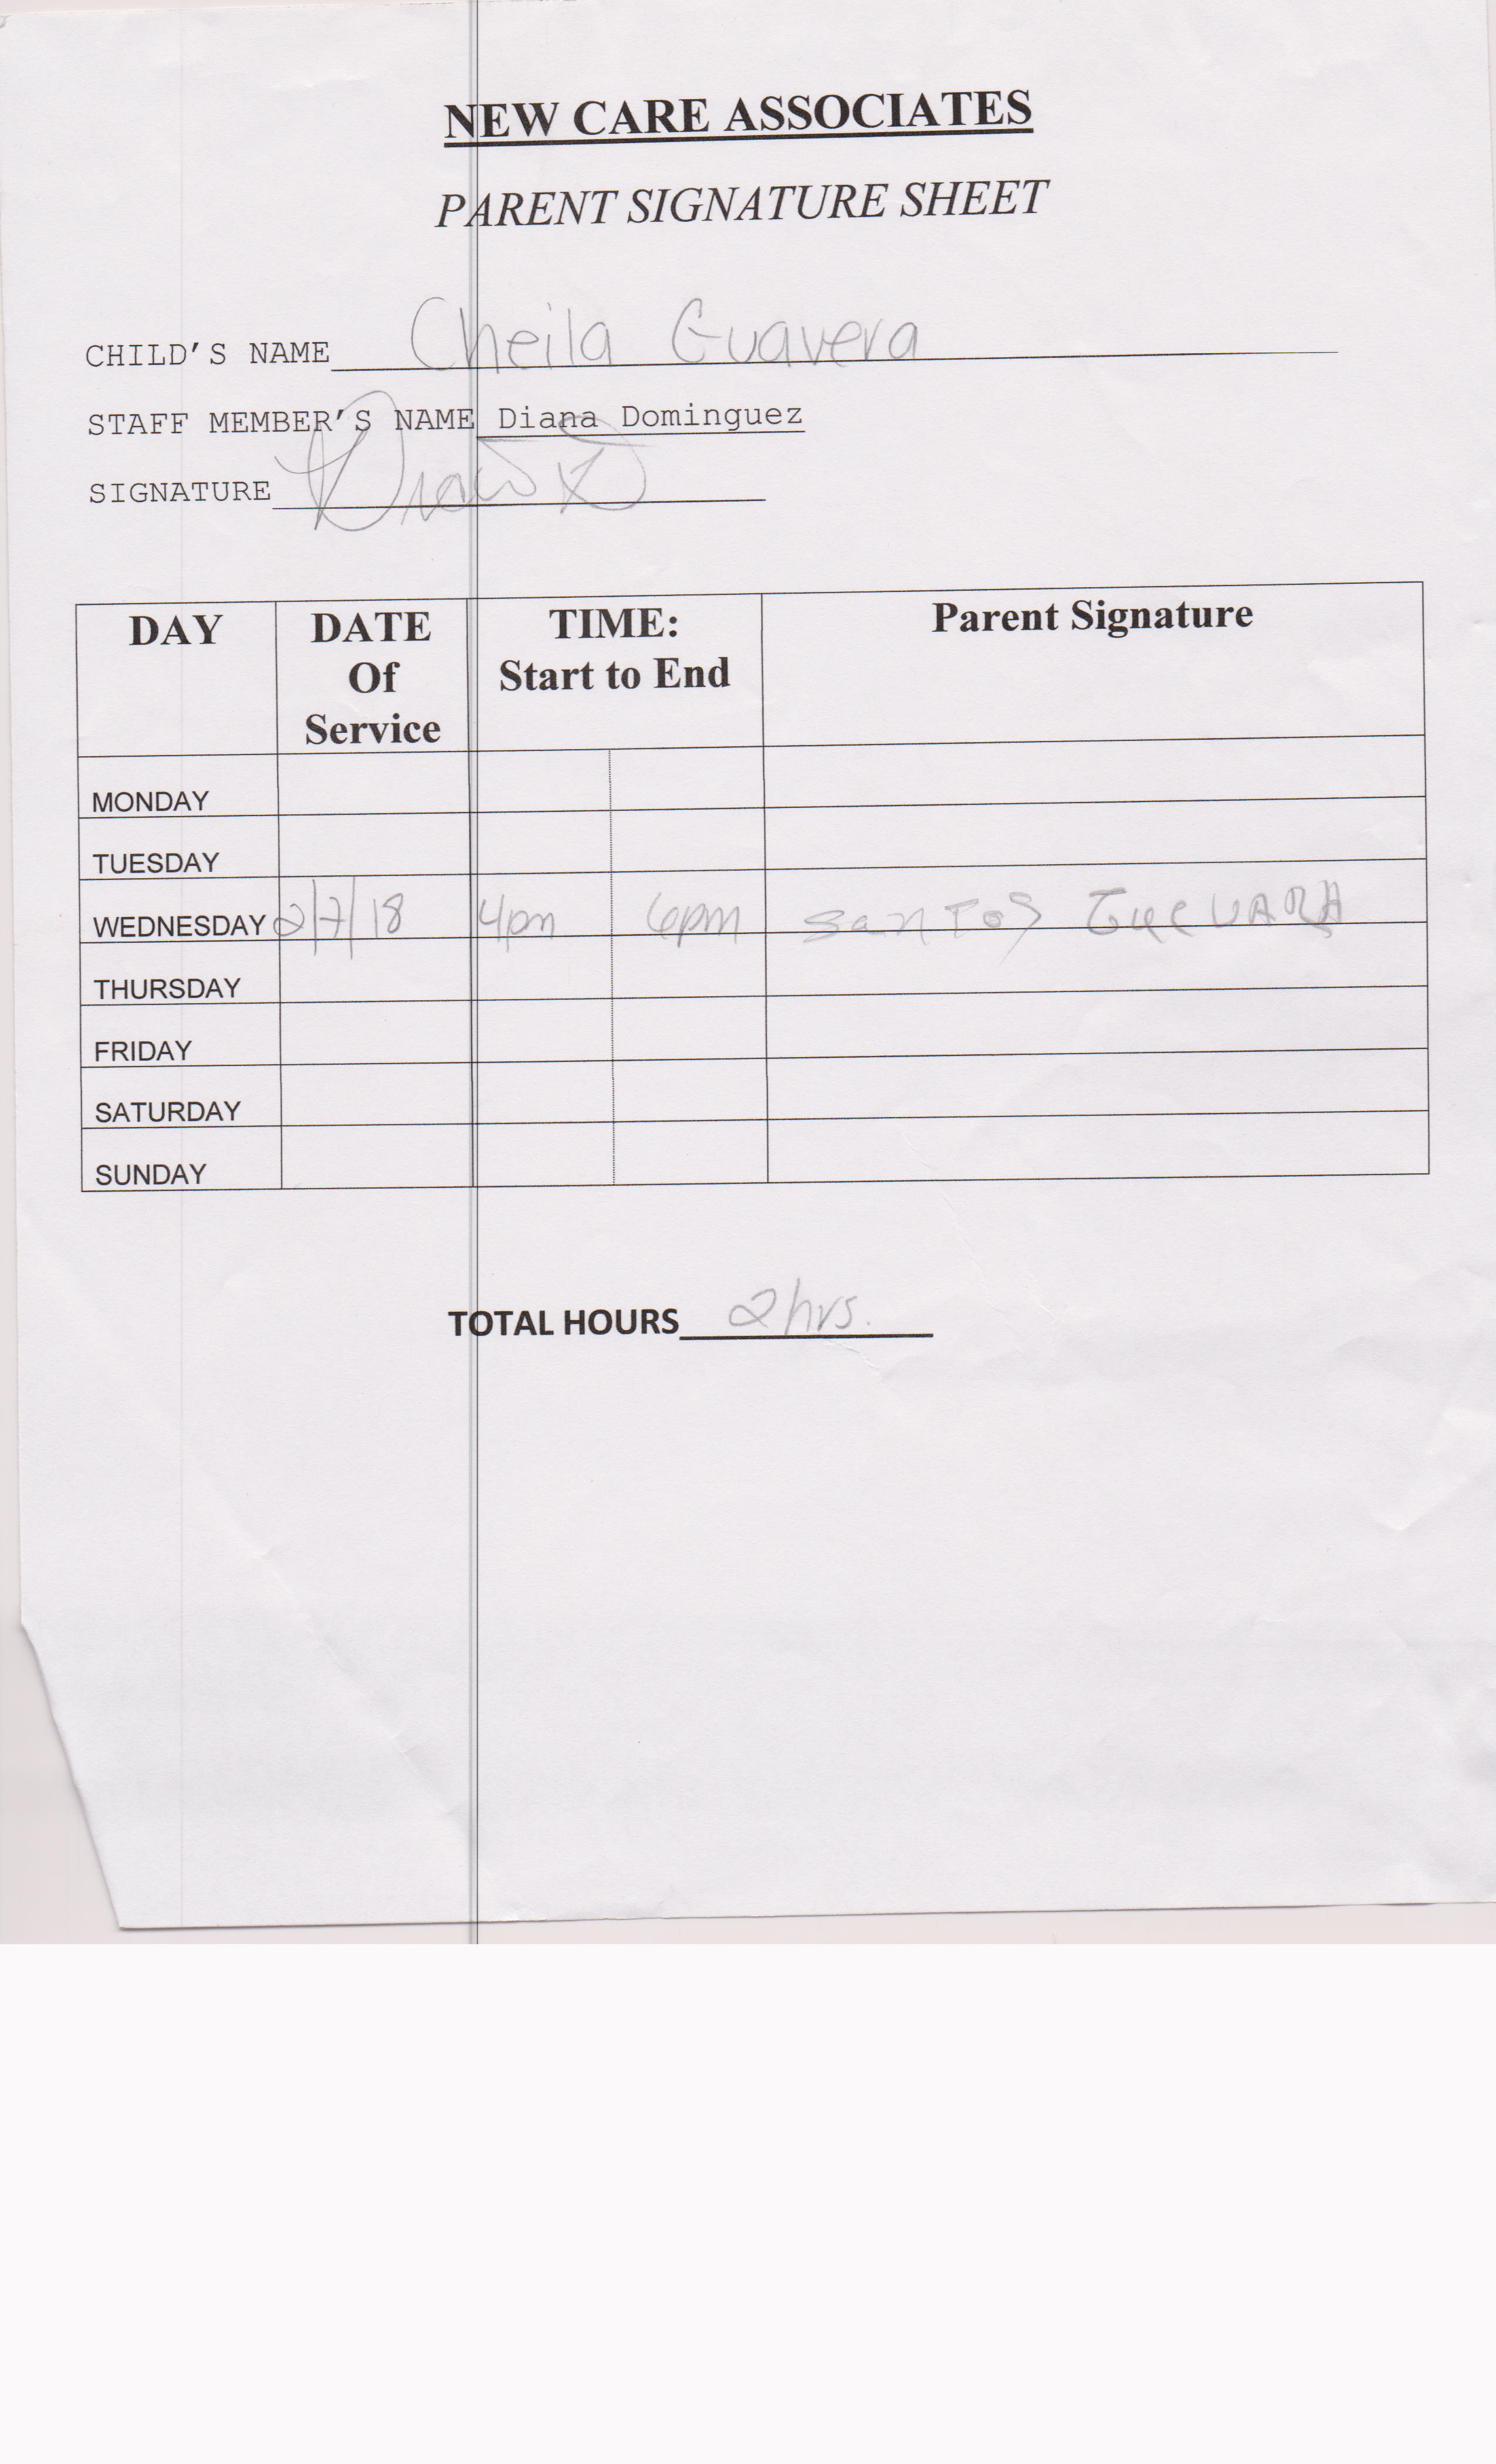 NEW CARE ASSOCIATES
PARENT SIGNATURE SHEET
CHILD'S NAME Cheila Guavera
STAFF MEMBER'S NAME Diana Dominguez
SIGNATURE Diana D
DAY DATE Of Service TIME: Start to End Parent Signature
MONDAY
TUESDAY
WEDNESDAY 2/7/18 4pm 6pm Santos GueVARA
THURSDAY
FRIDAY
SATURDAY
SUNDAY
TOTAL HOURS 2hrs.